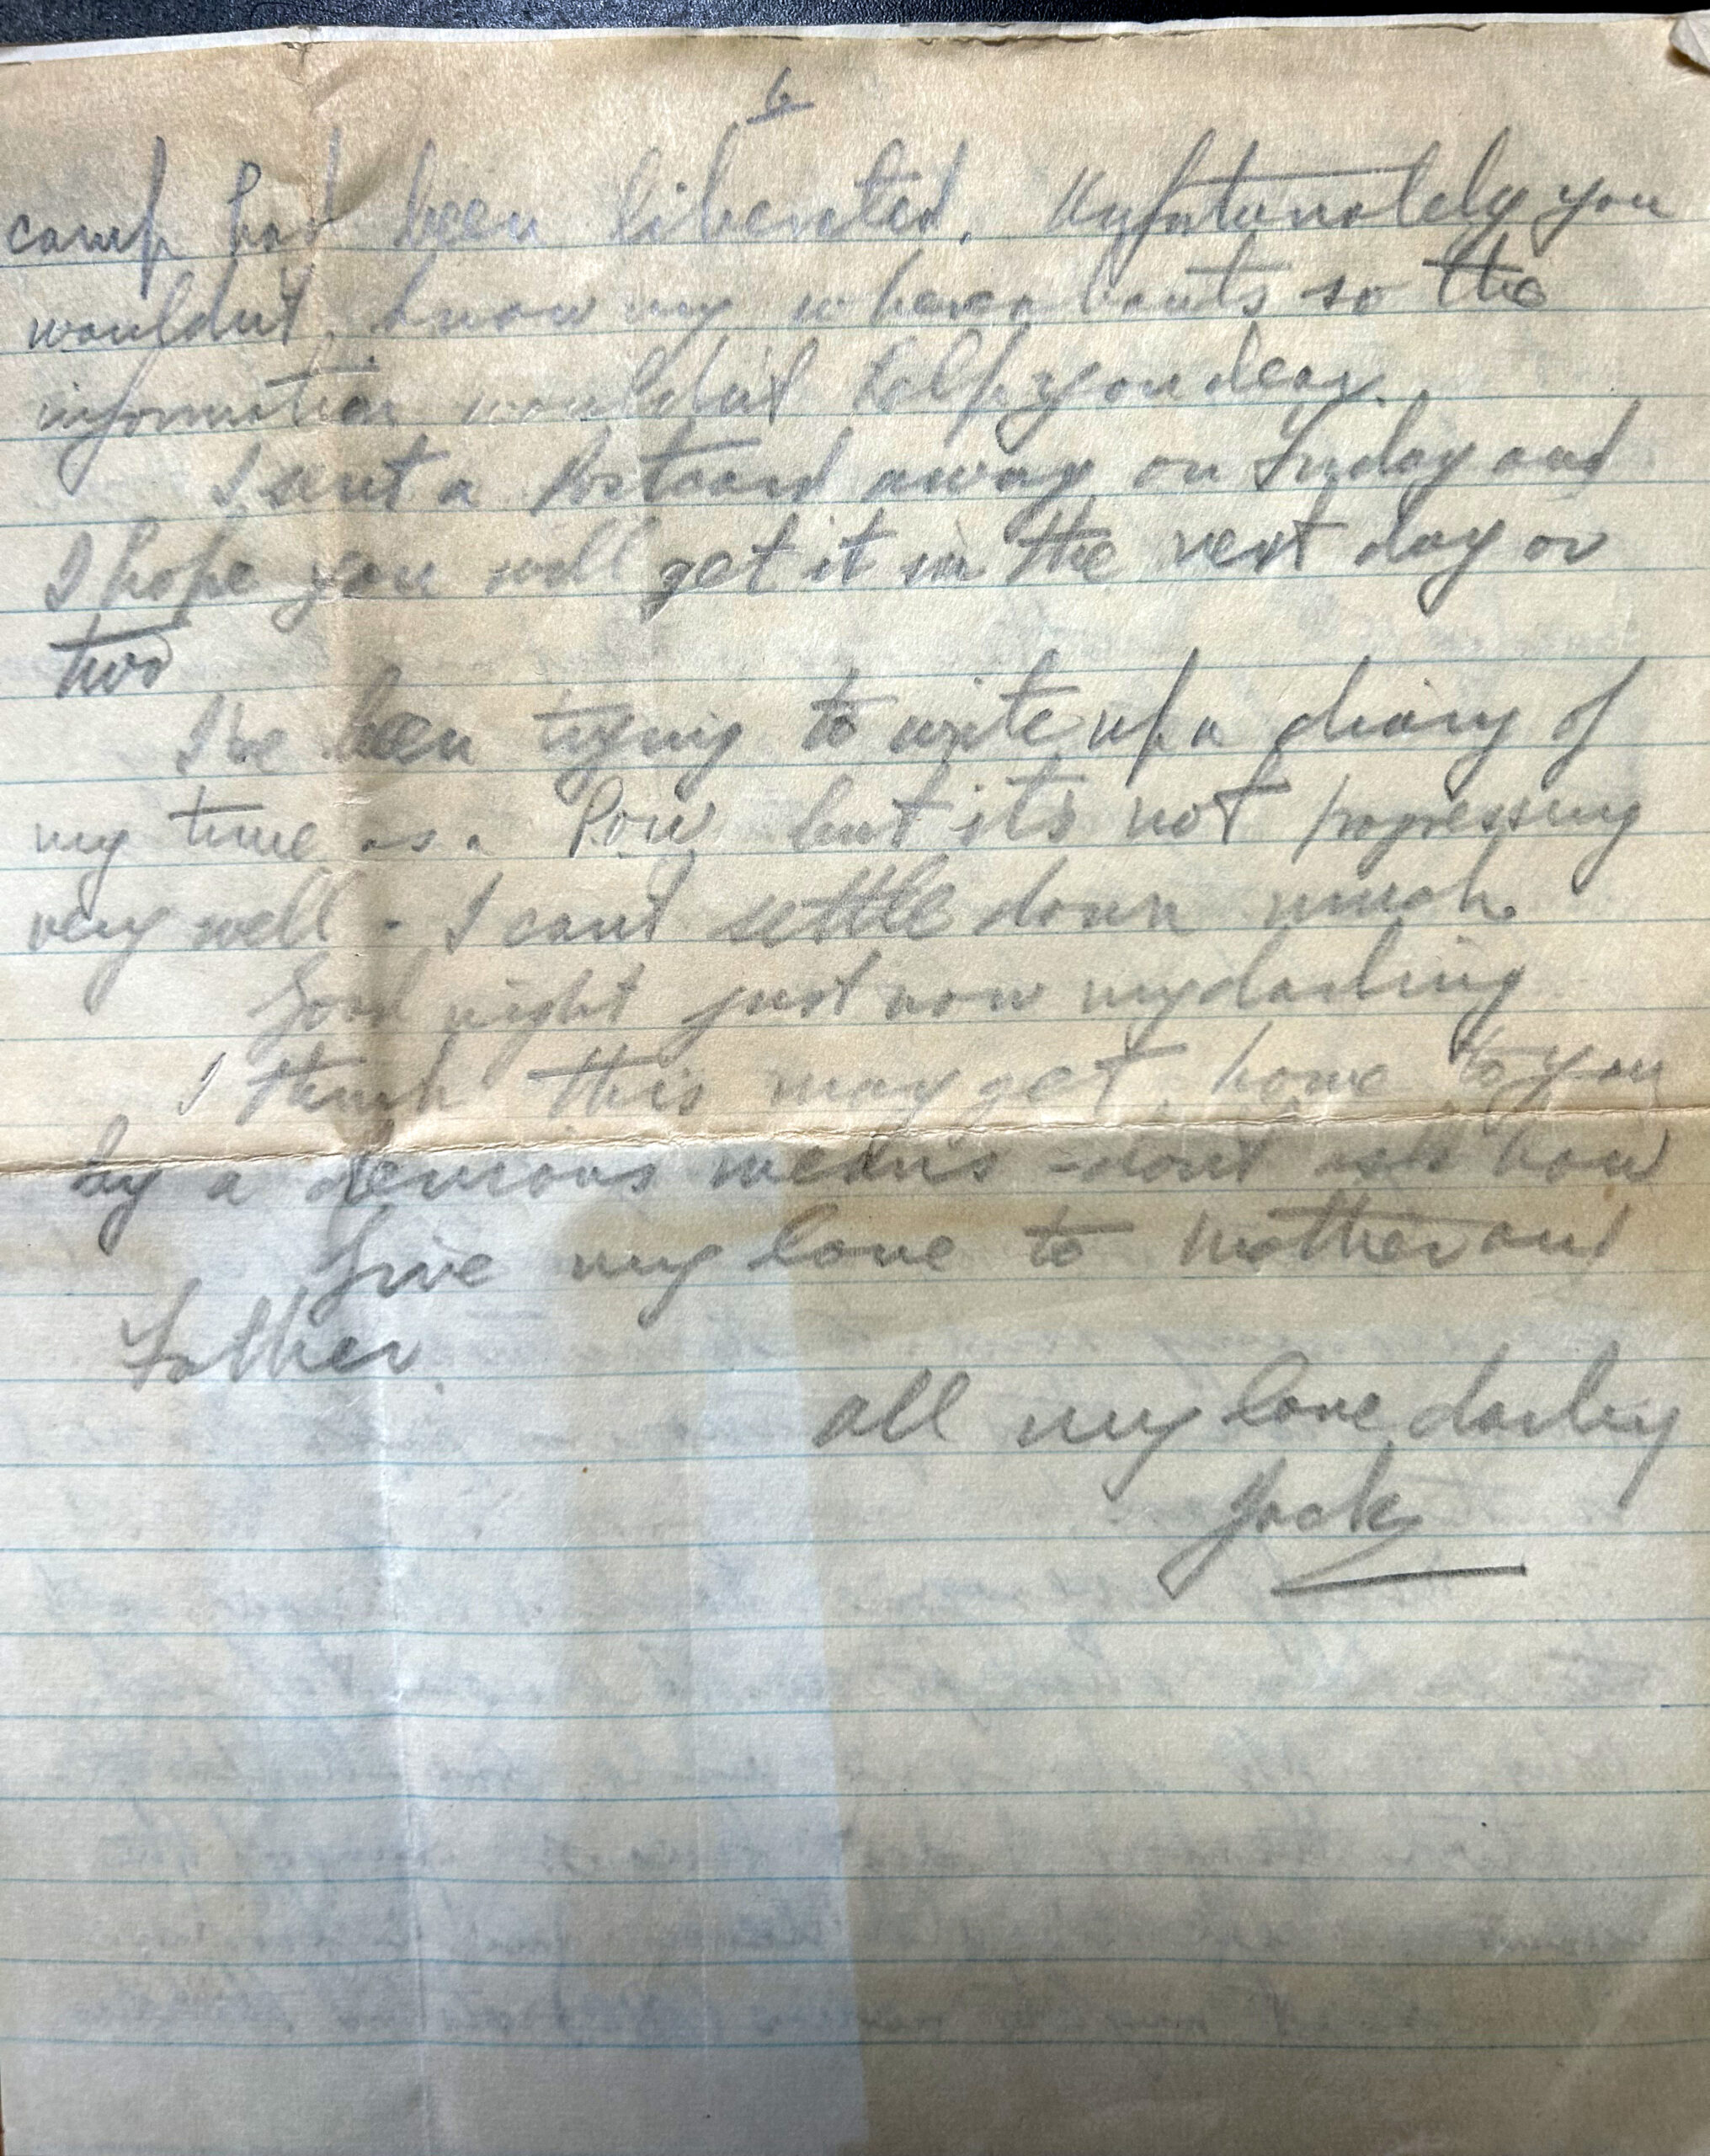 6
camp had been liberated. Unfortunately you
wouldn't know my whereabouts so the
information wouldn't help you dear.
I sent a Postcard away on Friday and
I hope you will get it in the next day or
two
I've been trying to write up a diary of
my time as a P.O.W. but it's not progressing
very well - I cant settle down much.
Good night just now my darling
I think this may get home to you
by a devious means - dont ask how
Give my love to Mother and
Father.
all my love darling
Jack